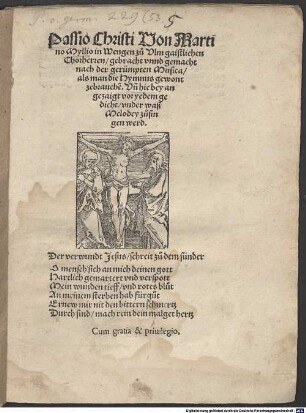 P.o. germ. 229 (53, 5
Passio Christi Von Marti
no Mylio in Wengen zů Vlm gaistlichen
Chorherren/ gebracht vnnd gemacht
nach der gerümpten Musica/
als man die Hymnus gewont
zebrauchẽ. Vñ hie bey an
gezaigt vor yedem ge
dicht/ vnder waß
Melodey zůsin
gen werd.
Der verwundt Jesus/ schreit zů dem sünder
O mensch sich an mich deinen gott
Hartlich gemartere vnd verspott
Mein wunden tieff/ vnd rotes blůt
An meinem sterben hab für gůt
Ernew mir nit den bittern schmertz
Durch sind/ mach rein dein malget hertz
Cum gratia & priuilegio.